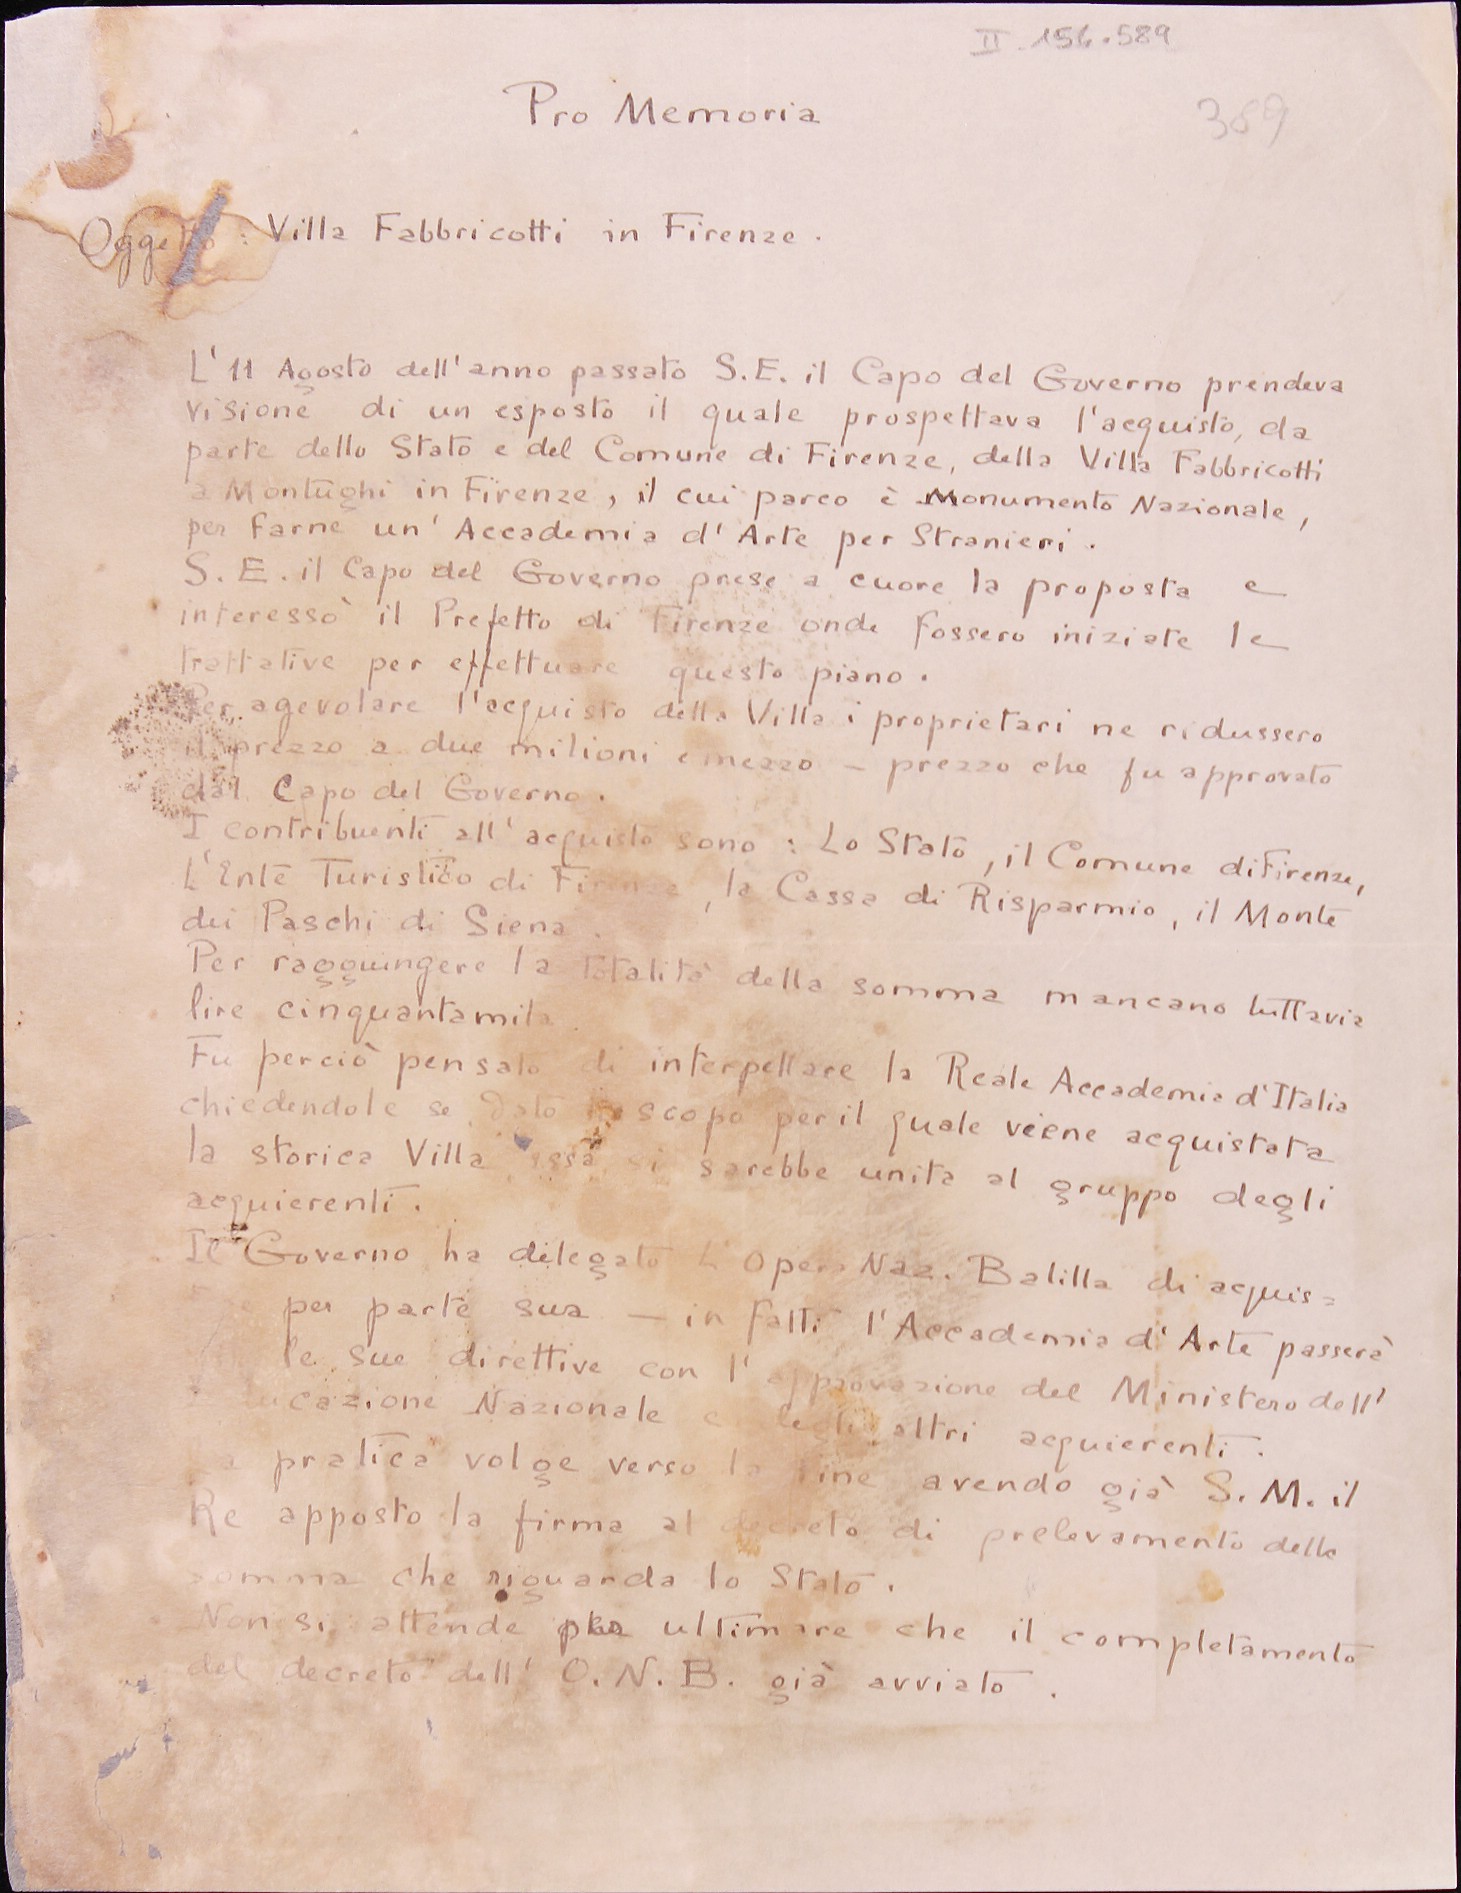 II 156.589
Pro Memoria
369
Oggetto : Villa Fabbricotti in Firenze .
L' 11 Agosto dell'anno passato S.E. il Capo del Governo prendeva
visione di un esposto il quale prospettava l'acquisto, da
parte dello Stato e del Comune di Firenze, della Villa Fabbricotti
a Montughi in Firenze, il cui parco è Monumento Nazionale,
per farne un' Accademia d' Arte per Stranieri .
S. E. il Capo del Governo prese a cuore la proposta e
interessò il Prefetto di Firenze onde fossero iniziate le
trattative per effettuare questo piano .
Per agevolare l'acquisto della Villa i proprietari ne ridussero
il prezzo a due milioni e mezzo – prezzo che fu approvato
dal Capo del Governo .
I contribuenti all' acquisto sono : Lo Stato, il Comune di Firenze,
L'Ente Turistico di Firenze, la Cassa di Risparmio, il Monte
dei Paschi di Siena .
Per raggiungere la totalità della somma mancano tuttavia
lire cinquantamila
Fu perciò pensato di interpellare la Reale Accademia d'Italia
chiedendole se dato lo scopo per il quale viene acquistata
la storica Villa essa si sarebbe unita al gruppo degli
acquierenti .
Il Governo ha delegato l'Opera Naz. Balilla di acquis=
per parte sua — in fatti l'Accademia d' Arte passerà
le sue direttive con l' approvazione del Ministero dell'
Educazione Nazionale e degli altri acquierenti .
La pratica volge verso la fine avendo già S. M. il
Re apposto la firma al decreto di prelevamento della
somma che riguarda lo Stato .
Non si attende per ultimare che il completamento
del decreto dell' O. N. B. già avviato .